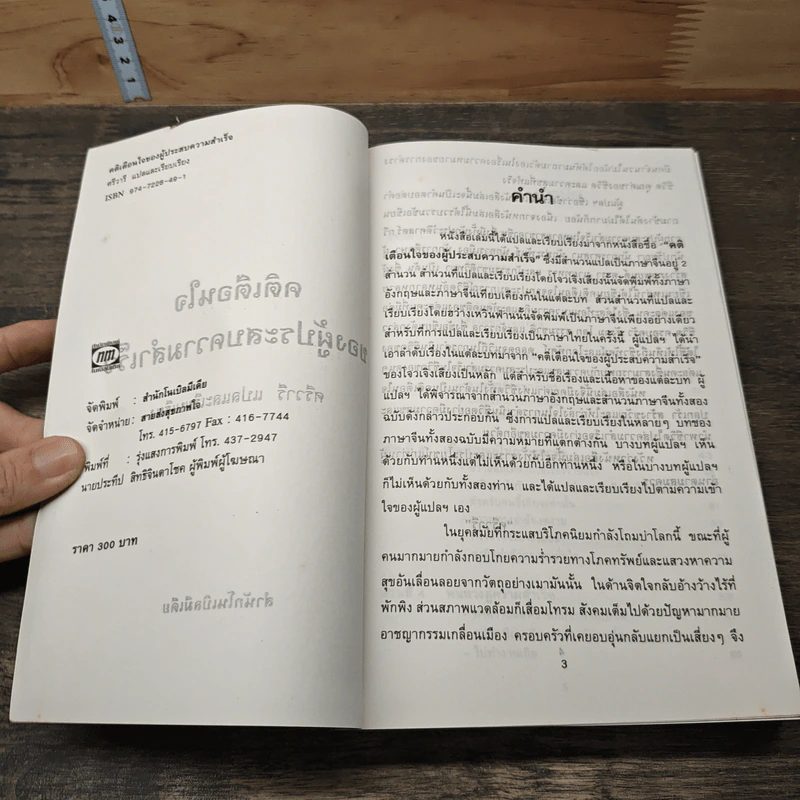 4
3
2
1
คติเตือนใจของผู้ประสบความสำเร็จ
ศรีวารี แปลและเรียบเรียง
ISBN 974-7226-49-1
จัดพิมพ์ : สำนักโนเบิลมีเดีย
จัดจำหน่าย: สายส่งสุขภาพใจ
โทร. 415-6797 Fax : 416-7744
พิมพ์ที่ : รุ่งแสงการพิมพ์ โทร. 437-2947
นายประทีป สิทธิจินดาโชค ผู้พิมพ์ผู้โฆษณา
ราคา 300 บาท
คำนำ
หนังสือเล่มนี้ได้แปลและเรียบเรียงมาจากหนังสือชื่อ "คติ
เตือนใจของผู้ประสบความสำเร็จ" ซึ่งมีสำนวนแปลเป็นภาษาจีนอยู่ 2
สำนวน สำนวนที่แปลและเรียบเรียงโดยโจวเจิงเสียงนั้นจัดพิมพ์ทั้งภาษา
อังกฤษและภาษาจีนเทียบเคียงกันในแต่ละบท ส่วนสำนวนที่แปลและ
เรียบเรียงโดยฮว่างเหวินฟานนั้นจัดพิมพ์เป็นภาษาจีนเพียงอย่างเดียว
สำหรับที่การแปลและเรียบเรียงเป็นภาษาไทยในครั้งนี้ ผู้แปลฯ ได้นำ
เอาลำดับเรื่องในแต่ละบทมาจาก "คติเตือนใจของผู้ประสบความสำเร็จ"
ของโจวเจิงเสียงเป็นหลัก แต่สำหรับชื่อเรื่องและเนื้อหาของแต่ละบท ผู้
แปลฯ ได้พิจารณาจากสำนวนภาษาอังกฤษและสำนวนภาษาจีนทั้งสอง
ฉบับดังกล่าวประกอบกัน ซึ่งการแปลและเรียบเรียงในหลายๆ บทของ
ภาษาจีนทั้งสองฉบับมีความหมายที่แตกต่างกัน บางบทผู้แปลฯ เห็น
ด้วยกับท่านหนึ่งแต่ไม่เห็นด้วยกับอีกท่านหนึ่ง หรือในบางบทผู้แปลฯ
ก็ไม่เห็นด้วยกับทั้งสองท่าน และได้แปลและเรียบเรียงไปตามความเข้า
ใจของผู้แปลฯ เอง
ในยุคสมัยที่กระแสบริโภคนิยมกำลังโถมบ่าโลกนี้ ขณะที่ผู้
คนมากมายกำลังกอบโกยความร่ำรวยทางโภคทรัพย์และแสวงหาความ
สุขอันเลื่อนลอยจากวัตถุอย่างเมามันนั้น ในด้านจิตใจกลับอ้างว้างไร้ที่
พักพิง ส่วนสภาพแวดล้อมก็เสื่อมโทรม สังคมเต็มไปด้วยปัญหามากมาย
อาชญากรรมเกลื่อนเมือง ครอบครัวที่เคยอบอุ่นกลับแยกเป็นเสี่ยงๆ จึง
3